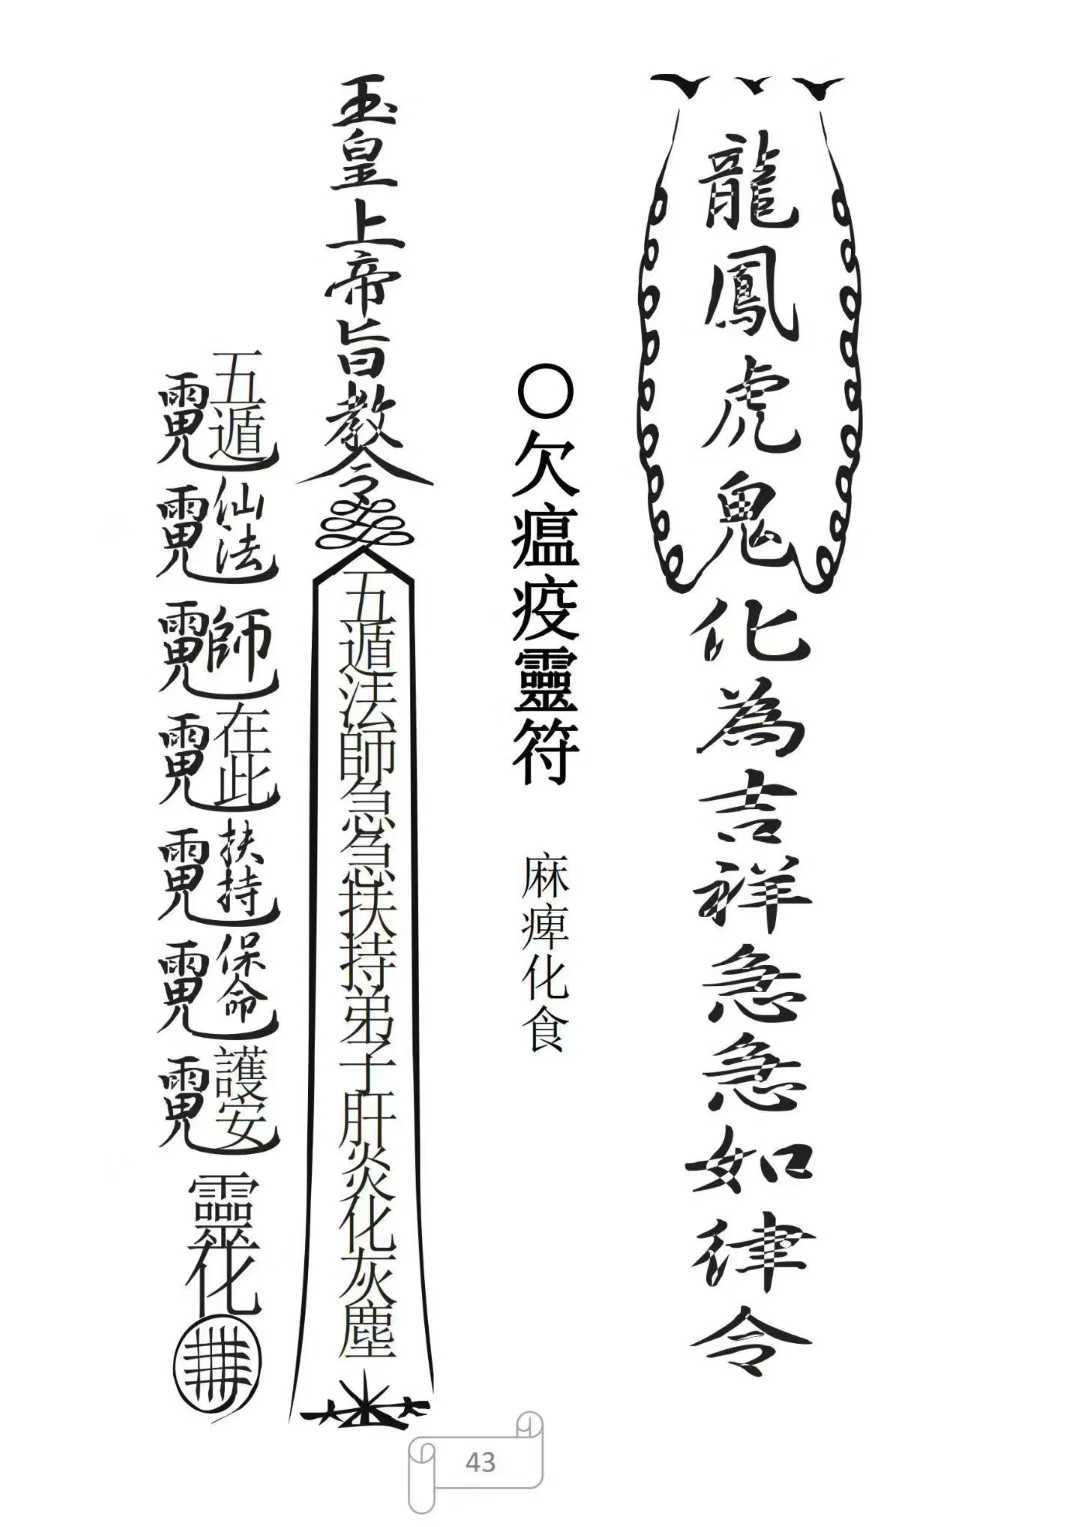 龍鳳虎鬼化為吉祥急急如律令
〇欠瘟疫靈符 麻痺化食
玉皇上帝旨教令
五遁法師急急扶持弟子肝炎化灰塵
五遁
仙法
師
在此
扶持
保命
護安
靈化
43